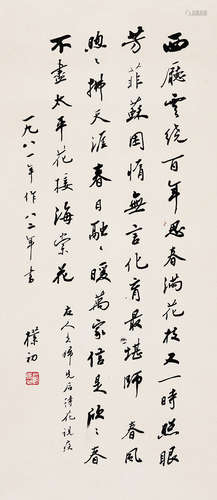 西廳雲繞百年思春滿花枝又一時照眼
芳菲蘇困惰無言化育最堪師 春風
煦〻拂天涯春日融〻暖萬家信是欣〻春
不盡太平花接海棠花
一九八一年作八二年書
樸初